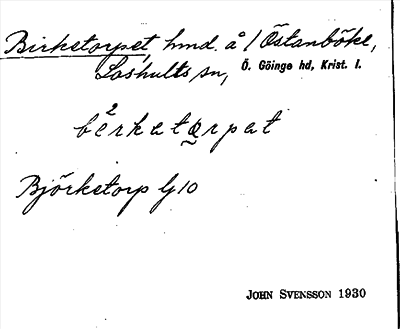 Birketorpet, hmd. å 1 Östanböke,
Loshults sn, Ö. Göinge hd, Krist. l.
bèrkatɑrpat
Björketorp
JOHN SVENSSON 1930